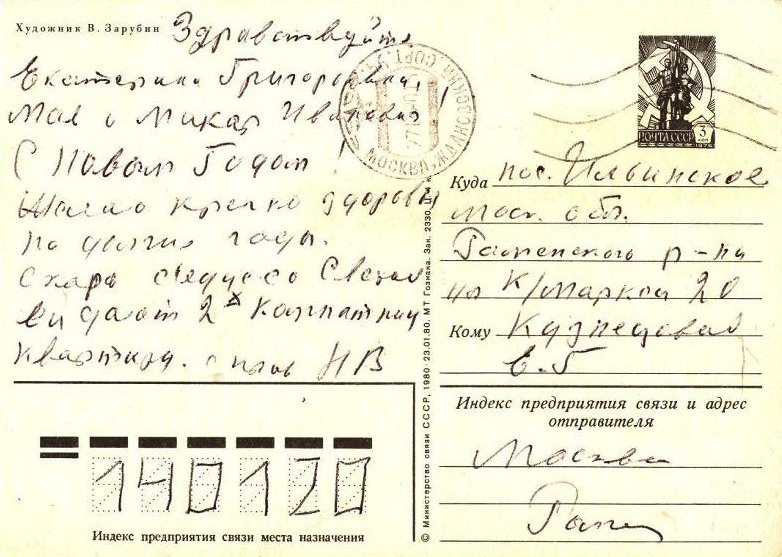 Художник В. Зарубин
Здравствуйте
Екатерина Григорьевна,
Мая и Макар Иванович!
С Новым Годом!
Желаю крепко здоровья
на долгие годы.
Скоро
дают 2х комнатную
квартиру. НВ
МОСКВА-ЖДАНОВСКИЙ СОРТ.
ПОЧТА СССР
3 коп
1976
Куда пос. Ильинское
Моск. обл.
Раменского р-на
ул К/Маркса 20
Кому Кузнецовой
Е.Г
Индекс предприятия связи и адрес
отправителя
Москва
140120
Индекс предприятия связи места назначения
© Министерство связи СССР, 1980 · 23.01.80. МТ Гознака. Зак. 2330.